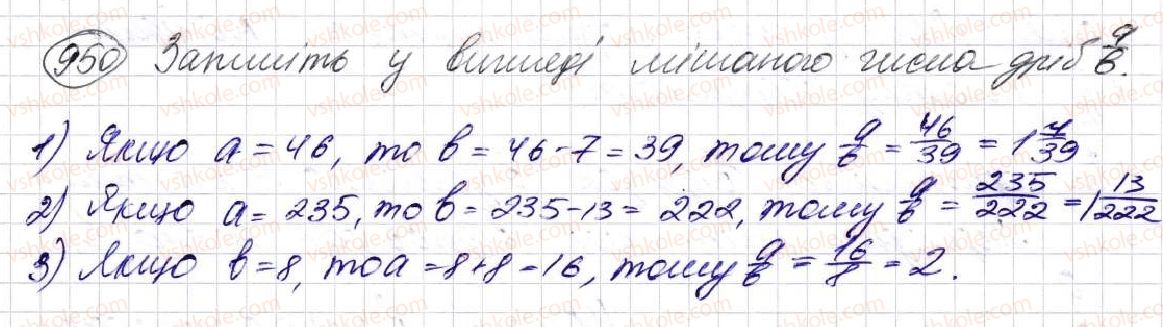 950 Запишіть у вигляді мішаного числа дріб a/b.
1) Якщо a = 46, то b = 46 - 7 = 39, тому a/b = 46/39 = 1 7/39
2) Якщо a = 235, то b = 235 - 13 = 222, тому a/b = 235/222 = 1 13/222
3) Якщо b = 8, то a = 8 + 8 = 16, тому a/b = 16/8 = 2.